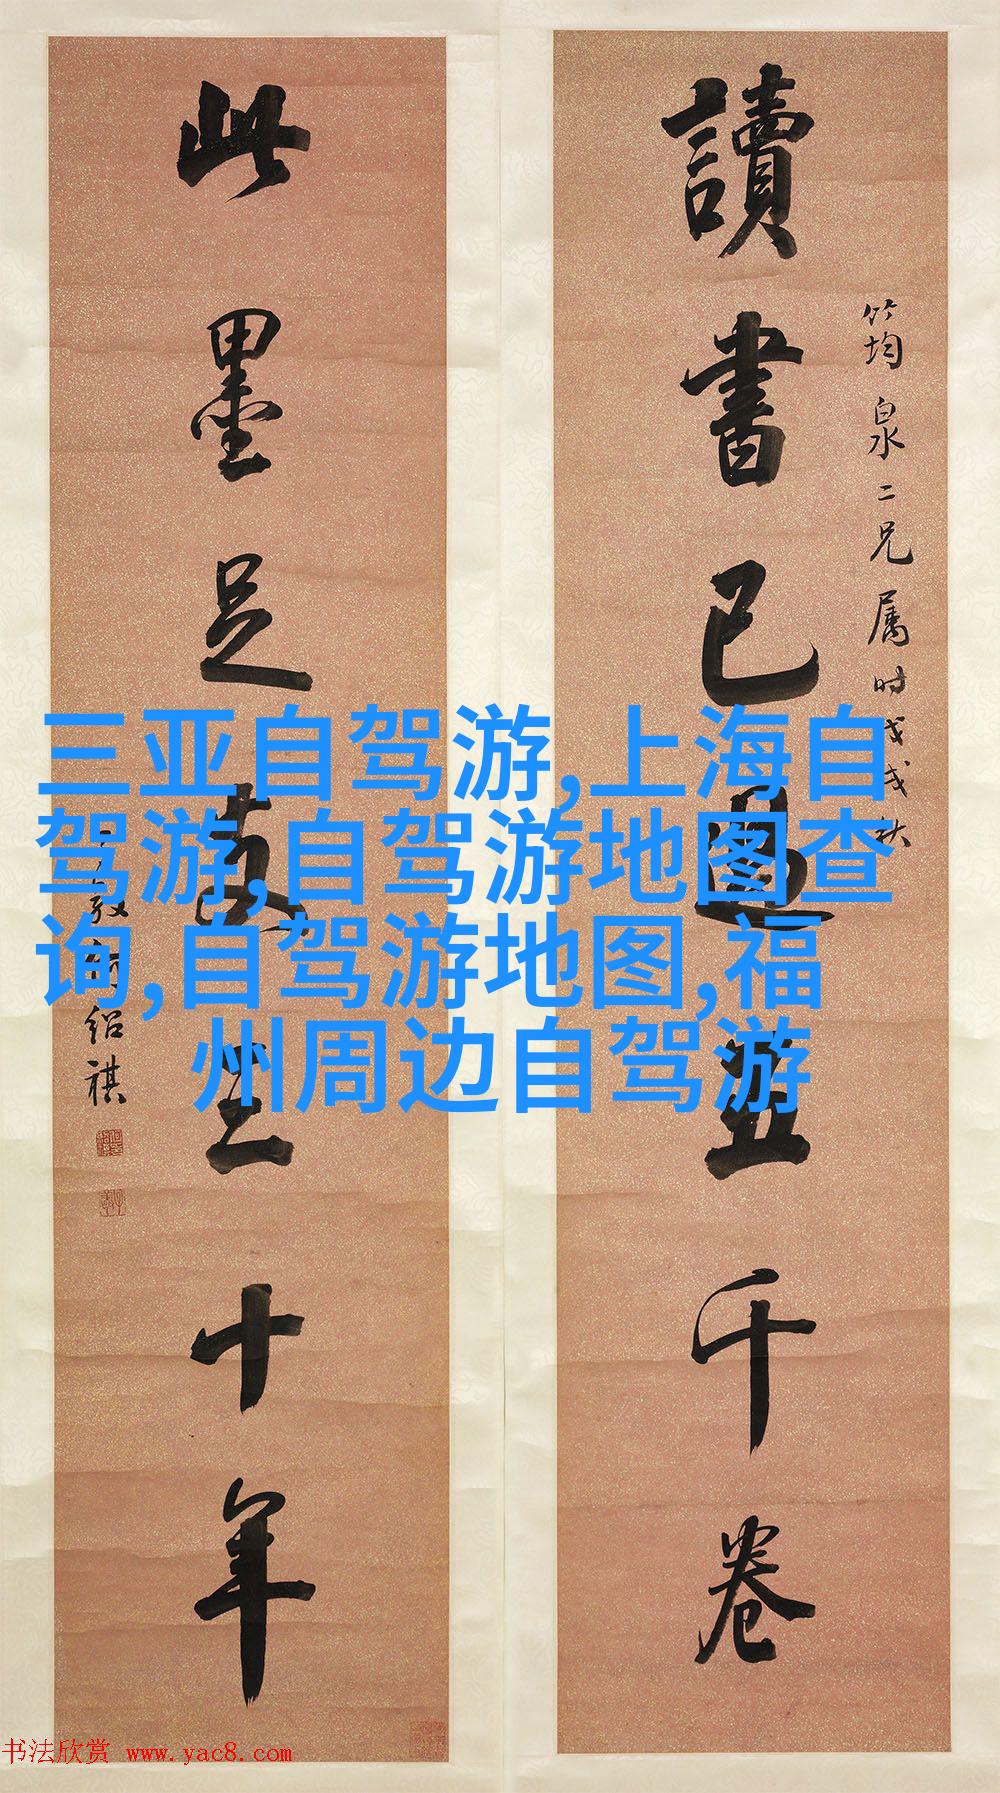 讀書已過五千卷
竹均泉二兄属时戊戌秋
此墨足支三十年
绍祺
三亚自驾游,上海自
驾游,自驾游地图查
询,自驾游地图,福
州周边自驾游
书法欣赏 www.yac8.com